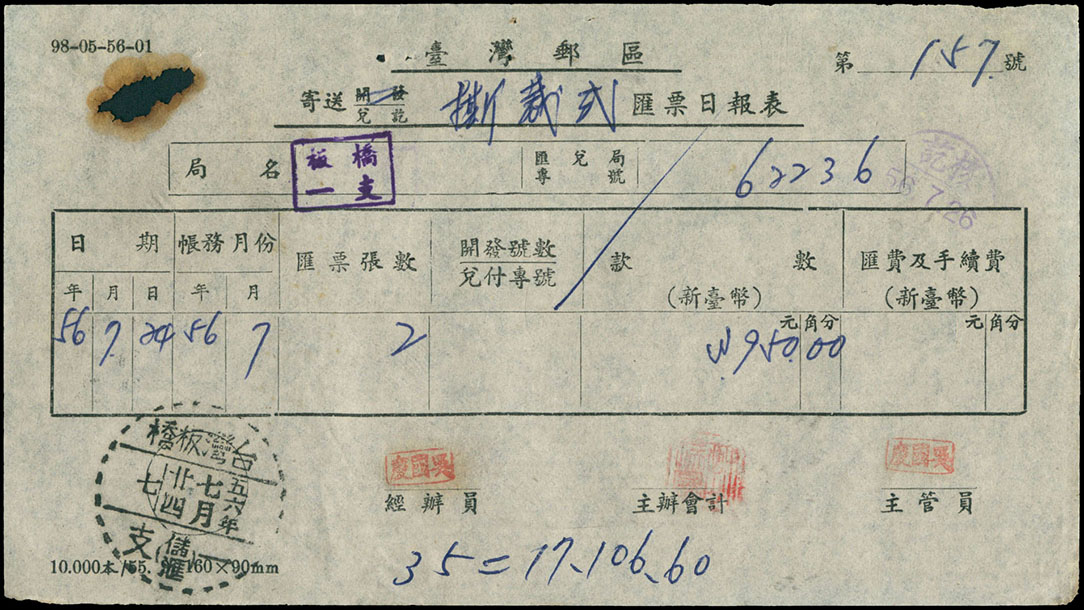 98-05-56-01
臺灣郵區
第 157 號
寄送 開發 兌訖 撕裁式 匯票日報表
局名 板橋 一支 匯兌局專號 62236
核訖
56.7.26
日期 帳務月份 匯票張數 開發號數 兌付專號 款數 (新臺幣) 匯費及手續費 (新臺幣)
年 月 日 年 月 元 角 分 元 角 分
56 7 24 56 7 2 950.00
台灣板橋
五六年
七月
廿四
支
儲匯
吳國慶 吳國慶
經辦員 主辦會計 主管員
35=17.106.60
10.000本/55. 160×90mm